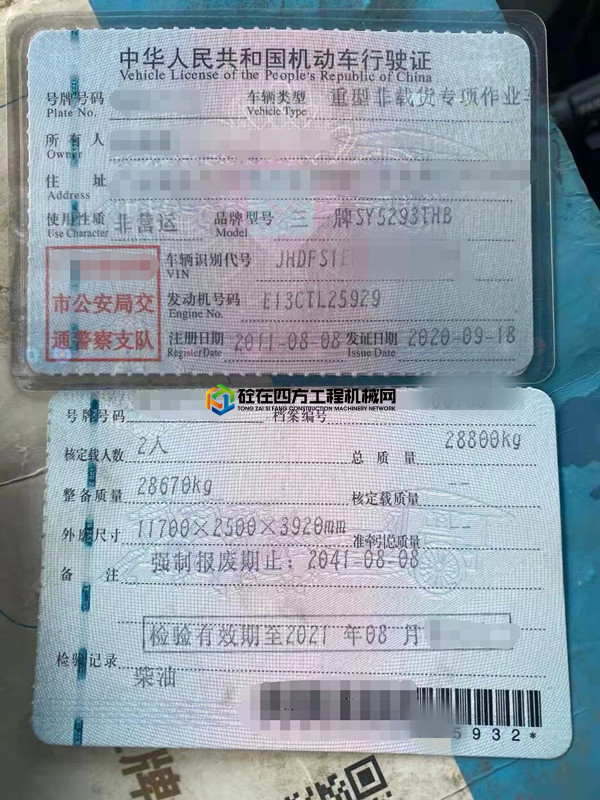 中华人民共和国机动车行驶证
Vehicle License of the People's Republic of China
号牌号码 车辆类型 重型非载货专项作业车
Plate No. Vehicle Type
所有人
Owner
住址
Address
使用性质 非营运 品牌型号 三一牌SY5293THB
Use Character Model
车辆识别代号 JHDFS1E
VIN
市公安局交
通警察支队
发动机号码 E13CTL25929
Engine No.
注册日期 2011-08-08 发证日期 2020-09-18
Register Date Issue Date
砼在四方工程机械网
TONG ZAI SI FANG CONSTRUCTION MACHINERY NETWORK
号牌号码 档案编号
核定载人数 2人 总质量 28800kg
整备质量 28670kg 核定载质量 --
外廓尺寸 11700×2500×3920mm 准牵引总质量 --
备注 强制报废期止：2041-08-08
检验有效期至2021年08月
检验记录
柴油
5932*
牌